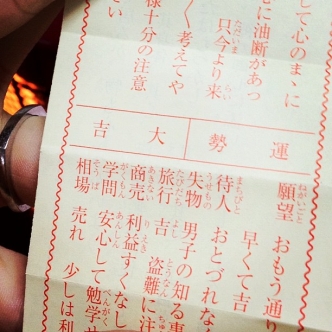 して心のまゝに
に油断があっ
只今より来
く考えてや
様十分の注意
さい
運勢
大吉
願望 おもう通り
早くて吉
待人 おとづれな
失物 男子の知る事
旅行 吉 盗難に注
商売 利益すくなし
学問 安心して勉学せ
相場 売れ 少しは利